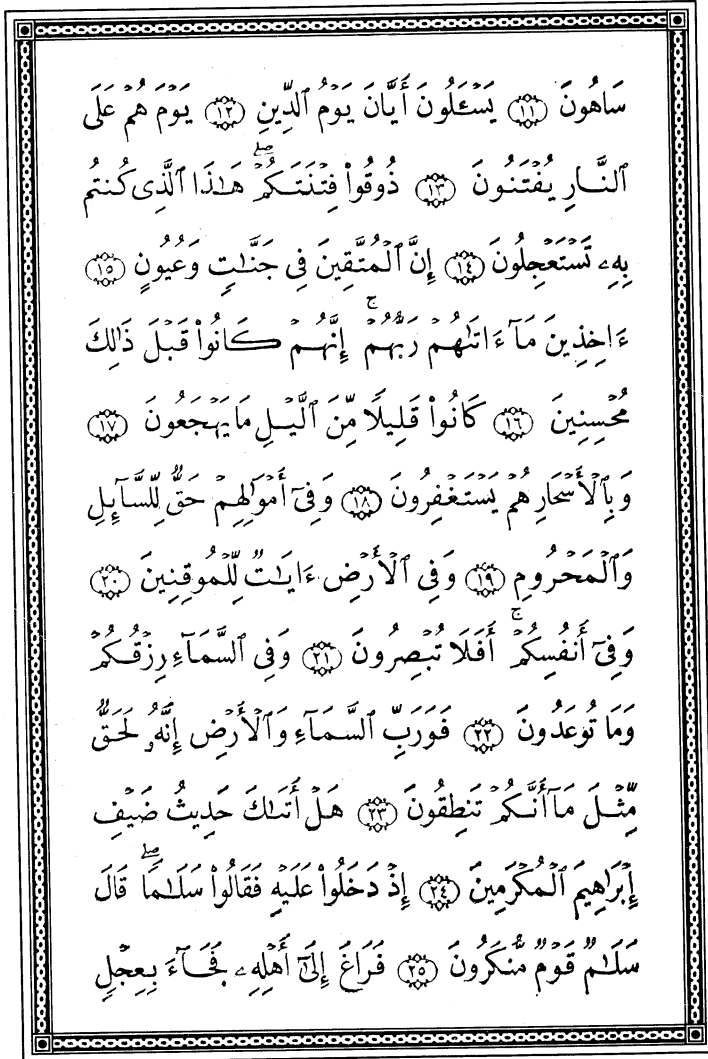 سَاهُونَ ١١ يَسْـَٔلُونَ أَيَّانَ يَوْمُ ٱلدِّينِ ١٢ يَوْمَ هُمْ عَلَى
ٱلنَّارِ يُفْتَنُونَ ١٣ ذُوقُوا۟ فِتْنَتَكُمْ ۖ هَـٰذَا ٱلَّذِى كُنتُم
بِهِۦ تَسْتَعْجِلُونَ ١٤ إِنَّ ٱلْمُتَّقِينَ فِى جَنَّـٰتٍ وَعُيُونٍ ١٥
ءَاخِذِينَ مَآ ءَاتَىٰهُمْ رَبُّهُمْ ۚ إِنَّهُمْ كَانُوا۟ قَبْلَ ذَٰلِكَ
مُحْسِنِينَ ١٦ كَانُوا۟ قَلِيلًا مِّنَ ٱلَّيْلِ مَا يَهْجَعُونَ ١٧
وَبِٱلْأَسْحَارِ هُمْ يَسْتَغْفِرُونَ ١٨ وَفِىٓ أَمْوَٰلِهِمْ حَقٌّ لِّلسَّآئِلِ
وَٱلْمَحْرُومِ ١٩ وَفِى ٱلْأَرْضِ ءَايَـٰتٌ لِّلْمُوقِنِينَ ٢٠
وَفِىٓ أَنفُسِكُمْ ۚ أَفَلَا تُبْصِرُونَ ٢١ وَفِى ٱلسَّمَآءِ رِزْقُكُمْ
وَمَا تُوعَدُونَ ٢٢ فَوَرَبِّ ٱلسَّمَآءِ وَٱلْأَرْضِ إِنَّهُۥ لَحَقٌّ
مِّثْلَ مَآ أَنَّكُمْ تَنطِقُونَ ٢٣ هَلْ أَتَىٰكَ حَدِيثُ ضَيْفِ
إِبْرَٰهِيمَ ٱلْمُكْرَمِينَ ٢٤ إِذْ دَخَلُوا۟ عَلَيْهِ فَقَالُوا۟ سَلَـٰمًا ۖ قَالَ
سَلَـٰمٌ قَوْمٌ مُّنكَرُونَ ٢٥ فَرَاغَ إِلَىٰٓ أَهْلِهِۦ فَجَآءَ بِعِجْلٍ